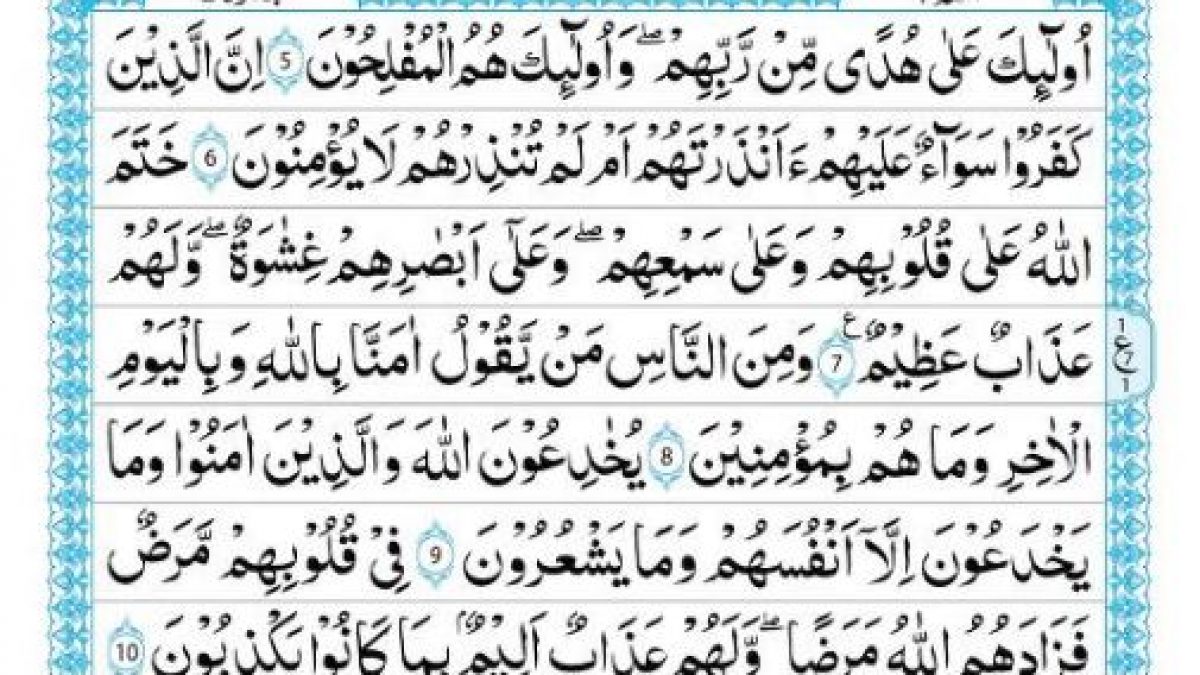 اُولٰٓئِكَ عَلٰى هُدًى مِّنْ رَّبِّهِمْ ۖ وَاُولٰٓئِكَ هُمُ الْمُفْلِحُوْنَ 5 اِنَّ الَّذِيْنَ
كَفَرُوْا سَوَآءٌ عَلَيْهِمْ ءَاَنْذَرْتَهُمْ اَمْ لَمْ تُنْذِرْهُمْ لَا يُؤْمِنُوْنَ 6 خَتَمَ
اللّٰهُ عَلٰى قُلُوْبِهِمْ وَعَلٰى سَمْعِهِمْ ۖ وَعَلٰٓى اَبْصٰرِهِمْ غِشٰوَةٌ ۖ وَّلَهُمْ
عَذَابٌ عَظِيْمٌ 7 ع وَمِنَ النَّاسِ مَنْ يَّقُوْلُ اٰمَنَّا بِاللّٰهِ وَبِالْيَوْمِ
1 ع 7 1
الْاٰخِرِ وَمَا هُمْ بِمُؤْمِنِيْنَ 8 يُخٰدِعُوْنَ اللّٰهَ وَالَّذِيْنَ اٰمَنُوْا وَمَا
يَخْدَعُوْنَ اِلَّآ اَنْفُسَهُمْ وَمَا يَشْعُرُوْنَ 9 فِيْ قُلُوْبِهِمْ مَّرَضٌ
فَزَادَهُمُ اللّٰهُ مَرَضًا ۖ وَّلَهُمْ عَذَابٌ اَلِيْمٌ بِمَا كَانُوْا يَكْذِبُوْنَ 10